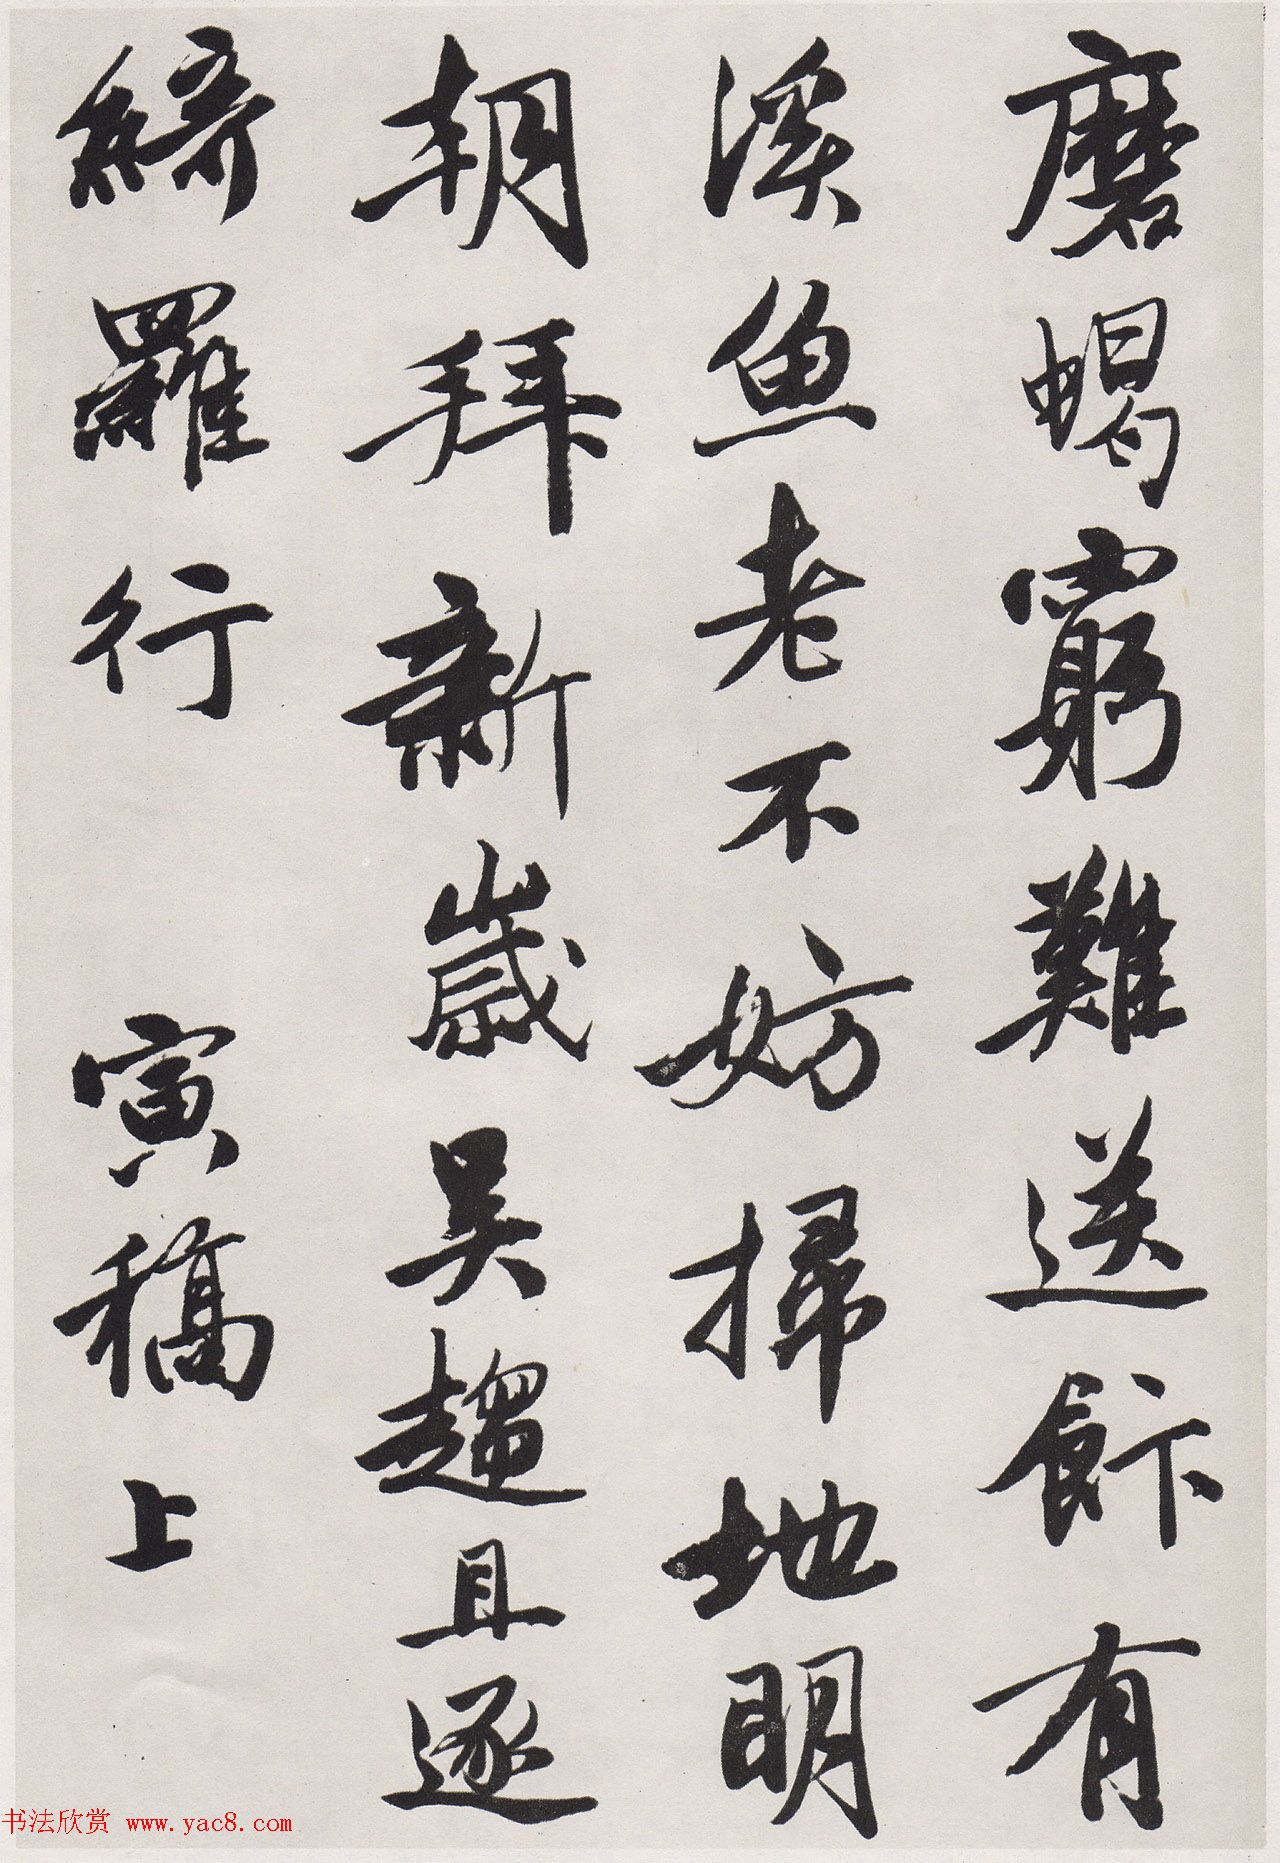 磨蝎窮難送餅有
溪魚老不妨掃地明
朝拜新歲吴趨且逐
綺羅行 寅稿上
书法欣赏 www.yac8.com